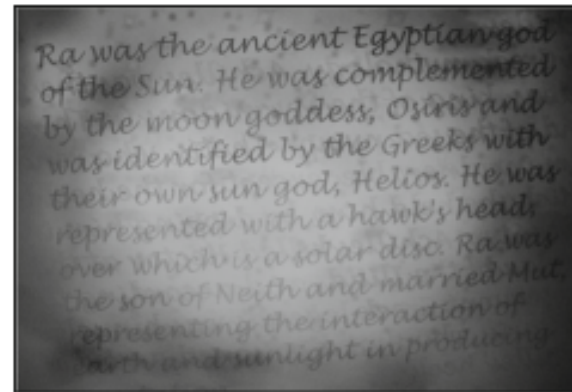 Ra was the ancient Egyptian god
of the Sun. He was complemented
by the moon goddess, Osiris and
was identified by the Greeks with
their own sun god, Helios. He was
represented with a hawk's head,
over which is a solar disc. Ra was
the son of Neith and married Mut,
representing the interaction of
earth and sunlight in producing